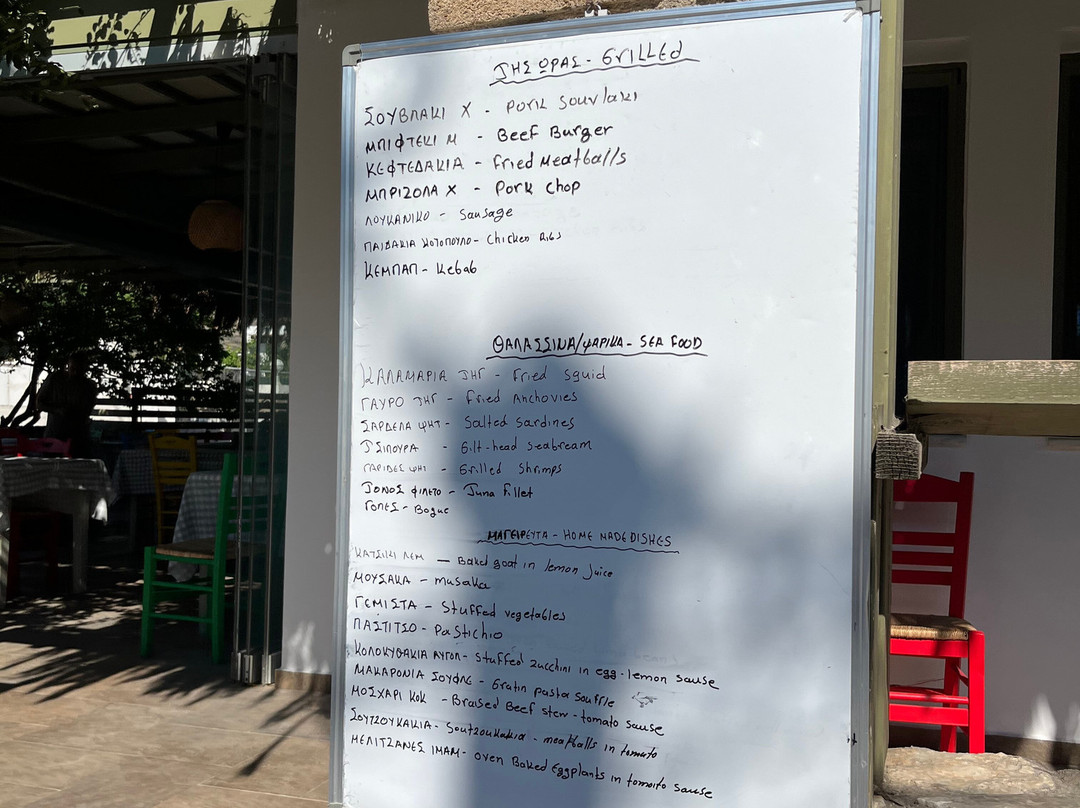 ΤΗΣ ΩΡΑΣ - GRILLEd
ΣΟΥΒΛΑΚΙ Χ - Pork Souvlaki
ΜΠΙΦΤΕΚΙ Μ - Beef Burger
ΚΕΦΤΕΔΑΚΙΑ - fried Meatballs
ΜΠΡΙΖΟΛΑ Χ - Pork Chop
ΛΟΥΚΑΝΙΚΟ - Sausage
ΠΑΙΔΑΚΙΑ ΚΟΤΟΠΟΥΛΟ - Chicken Ribs
ΚΕΜΠΑΠ - Kebab
ΘΑΛΑΣΣΙΝΑ/ΨΑΡΙΚΑ - SEA FOOD
ΚΑΛΑΜΑΡΙΑ ΤΗΓ - Fried Squid
ΓΑΥΡΟ ΤΗΓ - Fried Anchovies
ΣΑΡΔΕΛΑ ΨΗΤ - Salted Sardines
ΤΣΙΠΟΥΡΑ - Gilt-head Seabream
ΓΑΡΙΔΕΣ ΨΗΤ - Grilled Shrimps
ΤΟΝΟΣ ΦΙΛΕΤΟ - Tuna Fillet
ΓΟΠΕΣ - Bogue
ΜΑΓΕΙΡΕΥΤΑ - HOME MADE DISHES
ΚΑΤΣΙΚΙ ΛΕΜ - Baked goat in lemon Juice
ΜΟΥΣΑΚΑ - musaka
ΓΕΜΙΣΤΑ - Stuffed vegetables
ΠΑΣΤΙΤΣΙΟ - Pastichio
ΚΟΛΟΚΥΘΑΚΙΑ ΑΥΓΟΛ - Stuffed Zucchini in egg-lemon sause
ΜΑΚΑΡΟΝΙΑ ΣΟΥΦΛΕ - Gratin pasta Souffle
ΜΟΣΧΑΡΙ ΚΟΚ - Braised Beef stew - tomato sause
ΣΟΥΤΖΟΥΚΑΚΙΑ - Soutzoukakia - meatballs in tomato
ΜΕΛΙΤΖΑΝΕΣ ΙΜΑΜ - oven Baked Eggplants in tomato sause